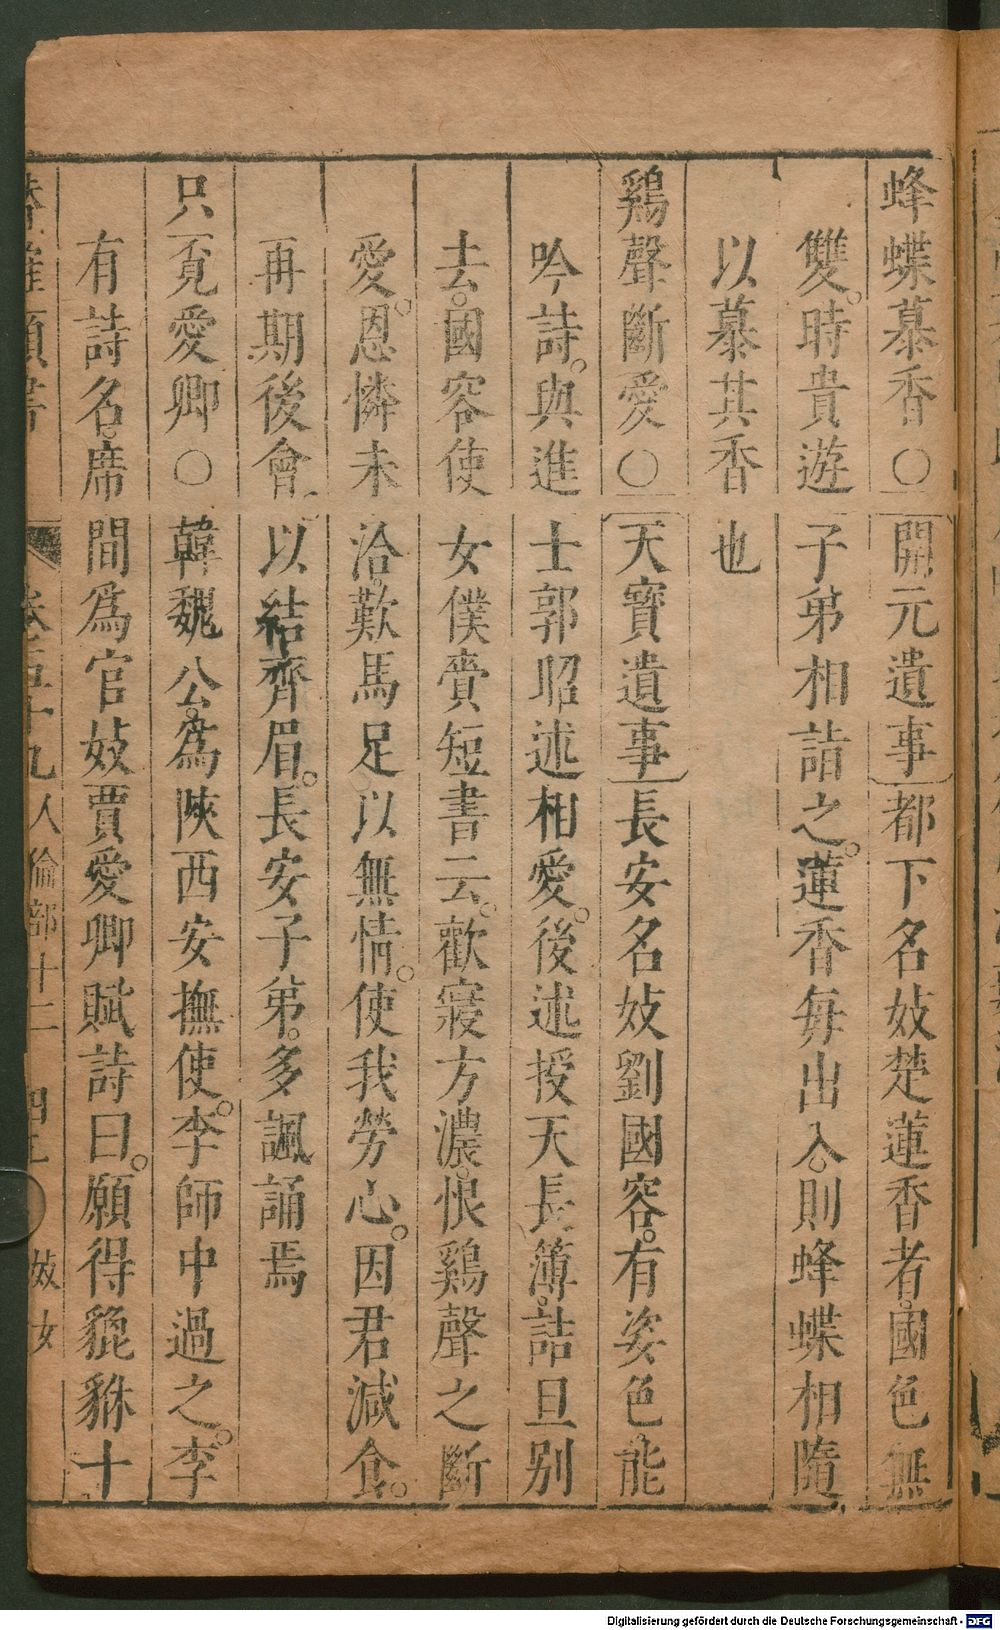 蜂蝶慕香○開元遺事都下名妓楚蓮香者國色無
雙時貴遊子弟相詣之蓮香每出入則蜂蝶相隨
以慕其香也
鷄聲斷愛○天寶遺事長安名妓劉國容有姿色能
吟詩與進士郭昭述相愛後述授天長簿詰旦别
去國容使女僕賫短書云歡寢方濃恨鷄聲之斷
愛恩憐未洽歎馬足以無情使我勞心因君減食
再期後會以結齊眉長安子弟多諷誦焉
只覓愛卿○韓魏公為陝西安撫使李師中過之李
有詩名席間為官妓賈愛卿賦詩曰願得貔貅十
卷五十九 人倫部十二 妓女
Digitalisierung gefördert durch die Deutsche Forschungsgemeinschaft - DFG